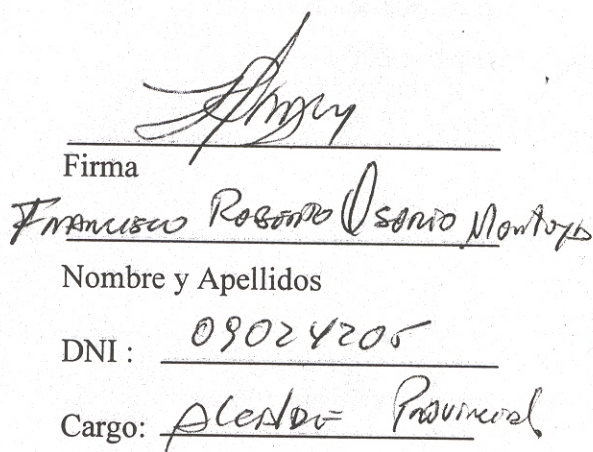 Firma
Francisco Roberto Osorio Montoya
Nombre y Apellidos
DNI : 09024205
Cargo: Alcalde Provincial